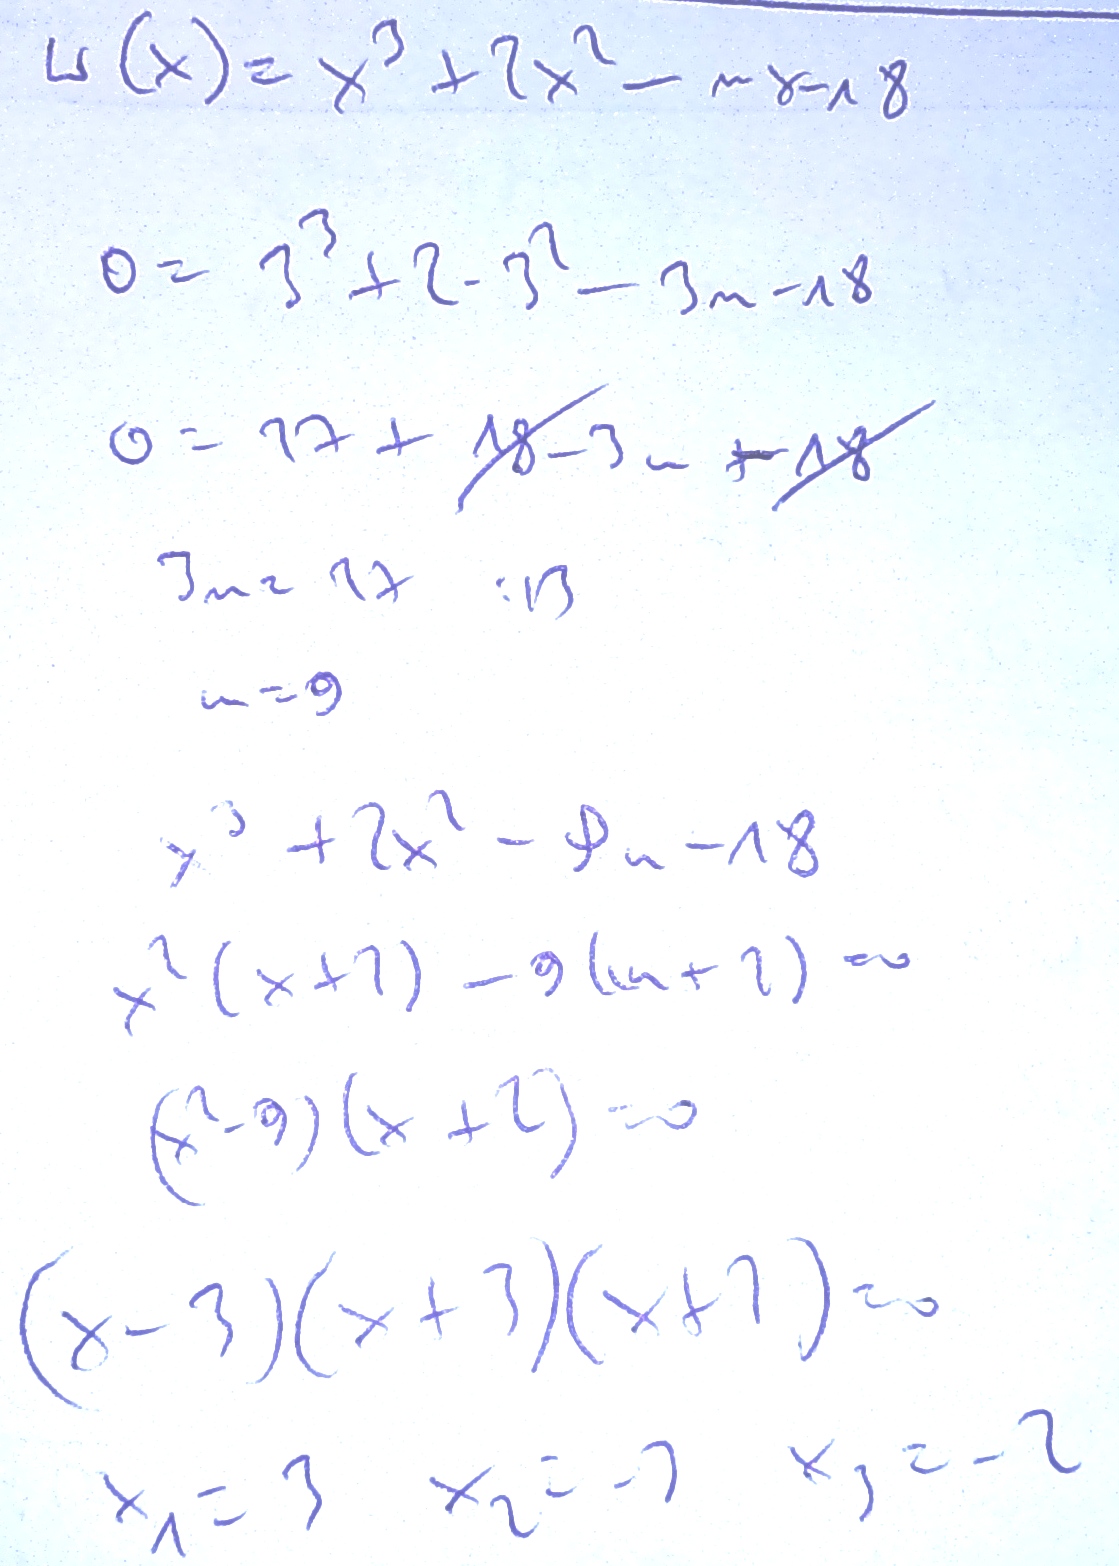 W(x) = x³ + 2x² - mx - 18
0 = 3³ + 2 · 3² - 3m - 18
0 = 27 + 18 - 3m - 18
3m = 27 :13
m = 9
x³ + 2x² - 9m - 18
x² (x + 2) - 9 (m + 2) = 0
(x² - 9) (x + 2) = 0
(x - 3) (x + 3) (x + 2) = 0
x₁ = 3 x₂ = -3 x₃ = -2